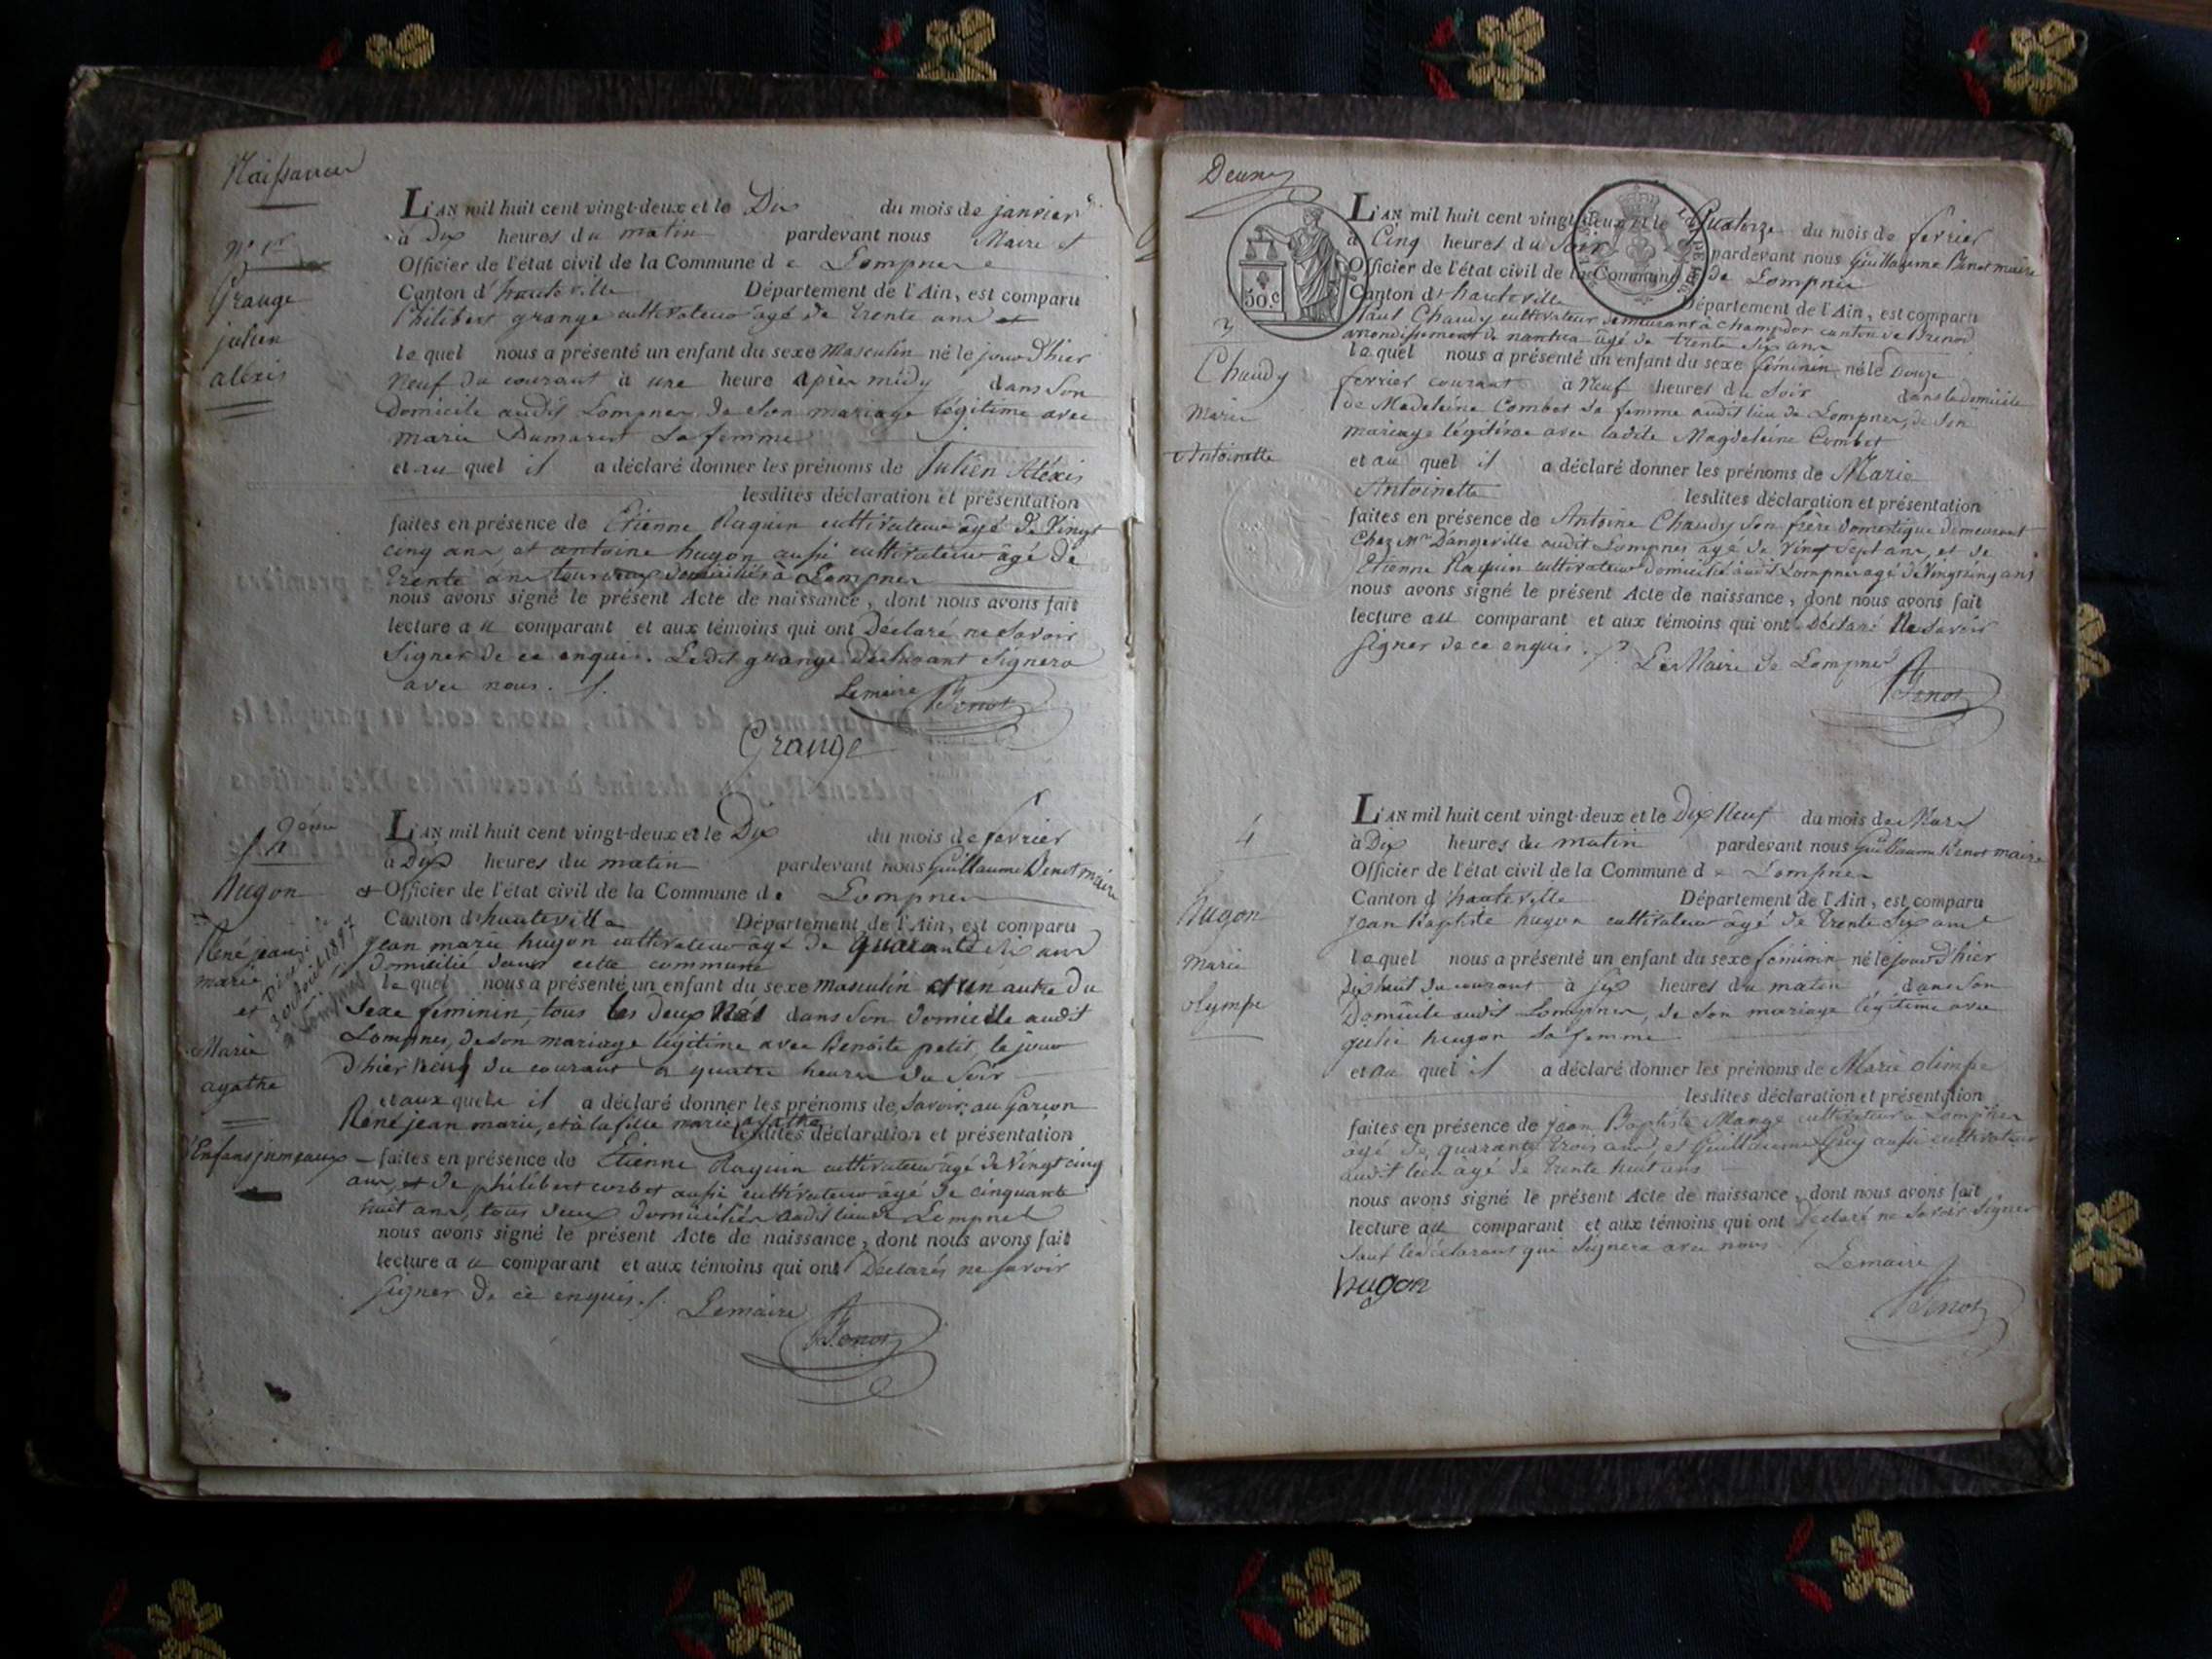 Naissances
N.º 1.er
Grange
julien
aléxis
L'AN mil huit cent vingt-deux et le Dix du mois de janvier
à Dix heures du matin pardevant nous Maire et
Officier de l'état civil de la Commune de Lompnes
Canton d'hauteville Département de l'Ain, est comparu
Philibert grange cultivateur agé de trente ans et
lequel nous a présenté un enfant du sexe Masculin né le jour d'hier
Neuf du courant à une heure après midy dans son
Domicile audit Lompnes, de son mariage légitime avec
marie Dumarest sa femme
et au quel il a déclaré donner les prénoms de Julien Aléxis
lesdites déclaration et présentation
faites en présence de Etienne Raquin cultivateur agé de Vingt
cinq ans et antoine hugon aussi cultivateur âgé de
trente ans tous deux domiciliés à Lompnes
nous avons signé le présent Acte de naissance, dont nous avons fait
lecture au comparant et aux témoins qui ont Déclaré ne savoir
signer de ce enquis. Ledit grange Déclarant signera
avec nous. /.
Lemaire Benot
Grange
2ème
hugon
René jean
marie
et
Marie
agathe
Enfans jumeaux
L'AN mil huit cent vingt-deux et le Dix du mois de fevrier
à Dix heures du matin pardevant nous Guillaume Benot maire
et Officier de l'état civil de la Commune de Lompnes
Canton d'hauteville Département de l'Ain, est comparu
jean marie hugon cultivateur âgé de quarante dix ans
domicilié dans cette commune
lequel nous a présenté un enfant du sexe masculin et un autre du
sexe féminin, tous les deux Nés dans son domicile audit
Lompnes, de son mariage légitime avec Benoite petit, le jour
d'hier neuf du courant à quatre heures du soir
et aux quels il a déclaré donner les prénoms de, savoir; au Garçon
René jean marie, et à la fille marie agathe
lesdites déclaration et présentation
faites en présence de Etienne Raquin cultivateur agé de Vingt cinq
ans, et de philibert corbet aussi cultivateur âgé de cinquante
huit ans, tous deux domiciliés audit lieu de Lompnes
nous avons signé le présent Acte de naissance, dont nous avons fait
lecture au comparant et aux témoins qui ont Déclarés ne savoir
signer de ce enquis. /. Lemaire
Benot
Deux
50.c
3
Chaudy
Marie
Antoinette
L'AN mil huit cent vingt-deux et le Quatorze du mois de fevrier
à Cinq heures du Soir pardevant nous Guillaume Benot maire
Officier de l'état civil de la Commune de Lompnes
Canton d'hauteville Département de l'Ain, est comparu
Paul Chaudy cultivateur demeurant à Champdor canton de Brenod
arrondissement de nantua âgé de trente six ans
lequel nous a présenté un enfant du sexe féminin né le Douze
fevrier courant à Neuf heures du Soir dans le domicile
de Madeleine Combet sa femme audit lieu de Lompnes, de son
mariage légitime avec ladite Magdeleine Combet
et au quel il a déclaré donner les prénoms de Marie
Antoinette
lesdites déclaration et présentation
faites en présence de Antoine Chaudy son frère domestique demeurant
Chez Mr Dangeville audit Lompnes agé de Vingt sept ans, et de
Etienne Raquin cultivateur domicilié audit Lompnes agé de Vingt cinq ans
nous avons signé le présent Acte de naissance, dont nous avons fait
lecture au comparant et aux témoins qui ont Déclaré Ne savoir
signer de ce enquis. /. Le Maire de Lompnes
Benot
4
hugon
Marie
olympe
L'AN mil huit cent vingt-deux et le Dix Neuf du mois de Mars
à Dix heures du matin pardevant nous Guillaume Benot maire
Officier de l'état civil de la Commune de Lompnes
Canton d'hauteville Département de l'Ain, est comparu
Jean Baptiste hugon cultivateur âgé de trente six ans
lequel nous a présenté un enfant du sexe féminin né le jour d'hier
Dix huit du courant à six heures du matin dans son
Domicile audit Lompnes, de son mariage légitime avec
hugon sa femme
et au quel il a déclaré donner les prénoms de Marie olimpe
lesdites déclaration et présentation
faites en présence de jean Baptiste Mange cultivateur à Lompnes
âgé de quarante trois ans, et Guillaume Guy aussi cultivateur
audit lieu âgé de trente huit ans
nous avons signé le présent Acte de naissance, dont nous avons fait
lecture au comparant et aux témoins qui ont Déclaré ne savoir signer
sauf le déclarant qui signera avec nous
Lemaire
hugon
Benot